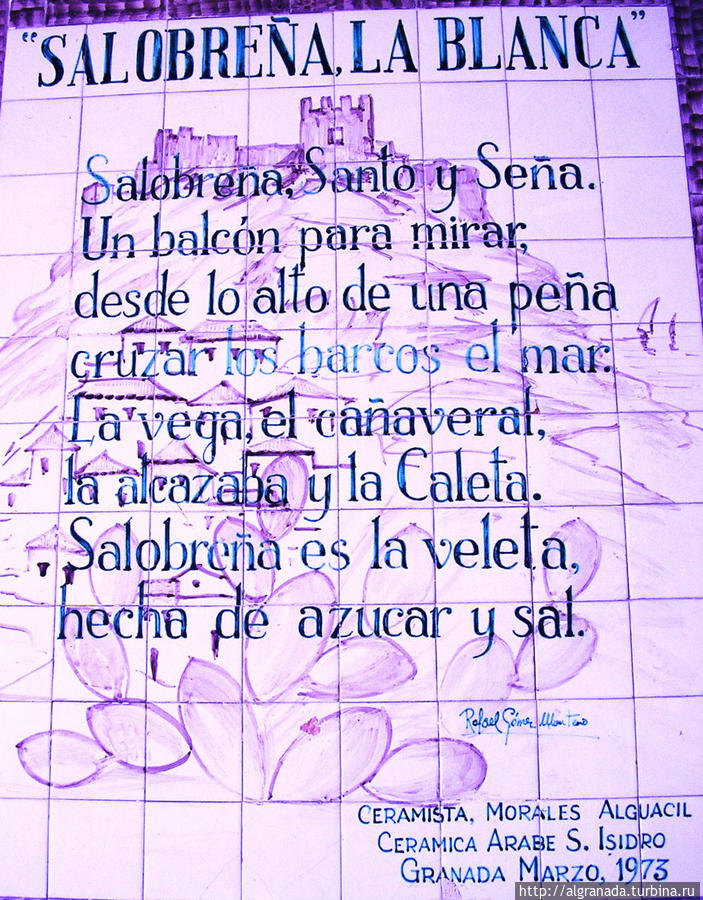 "SALOBREÑA, LA BLANCA"
Salobreña, Santo y Seña.
Un balcón para mirar,
desde lo alto de una peña
cruzar los barcos el mar.
La vega, el cañaveral,
la alcazaba y la Caleta.
Salobreña es la veleta,
hecha de azucar y sal.
Rafael Gómez Montero
CERAMISTA, MORALES ALGUACIL
CERAMICA ARABE S. ISIDRO
GRANADA MARZO, 1973
http://algranada.turbina.ru